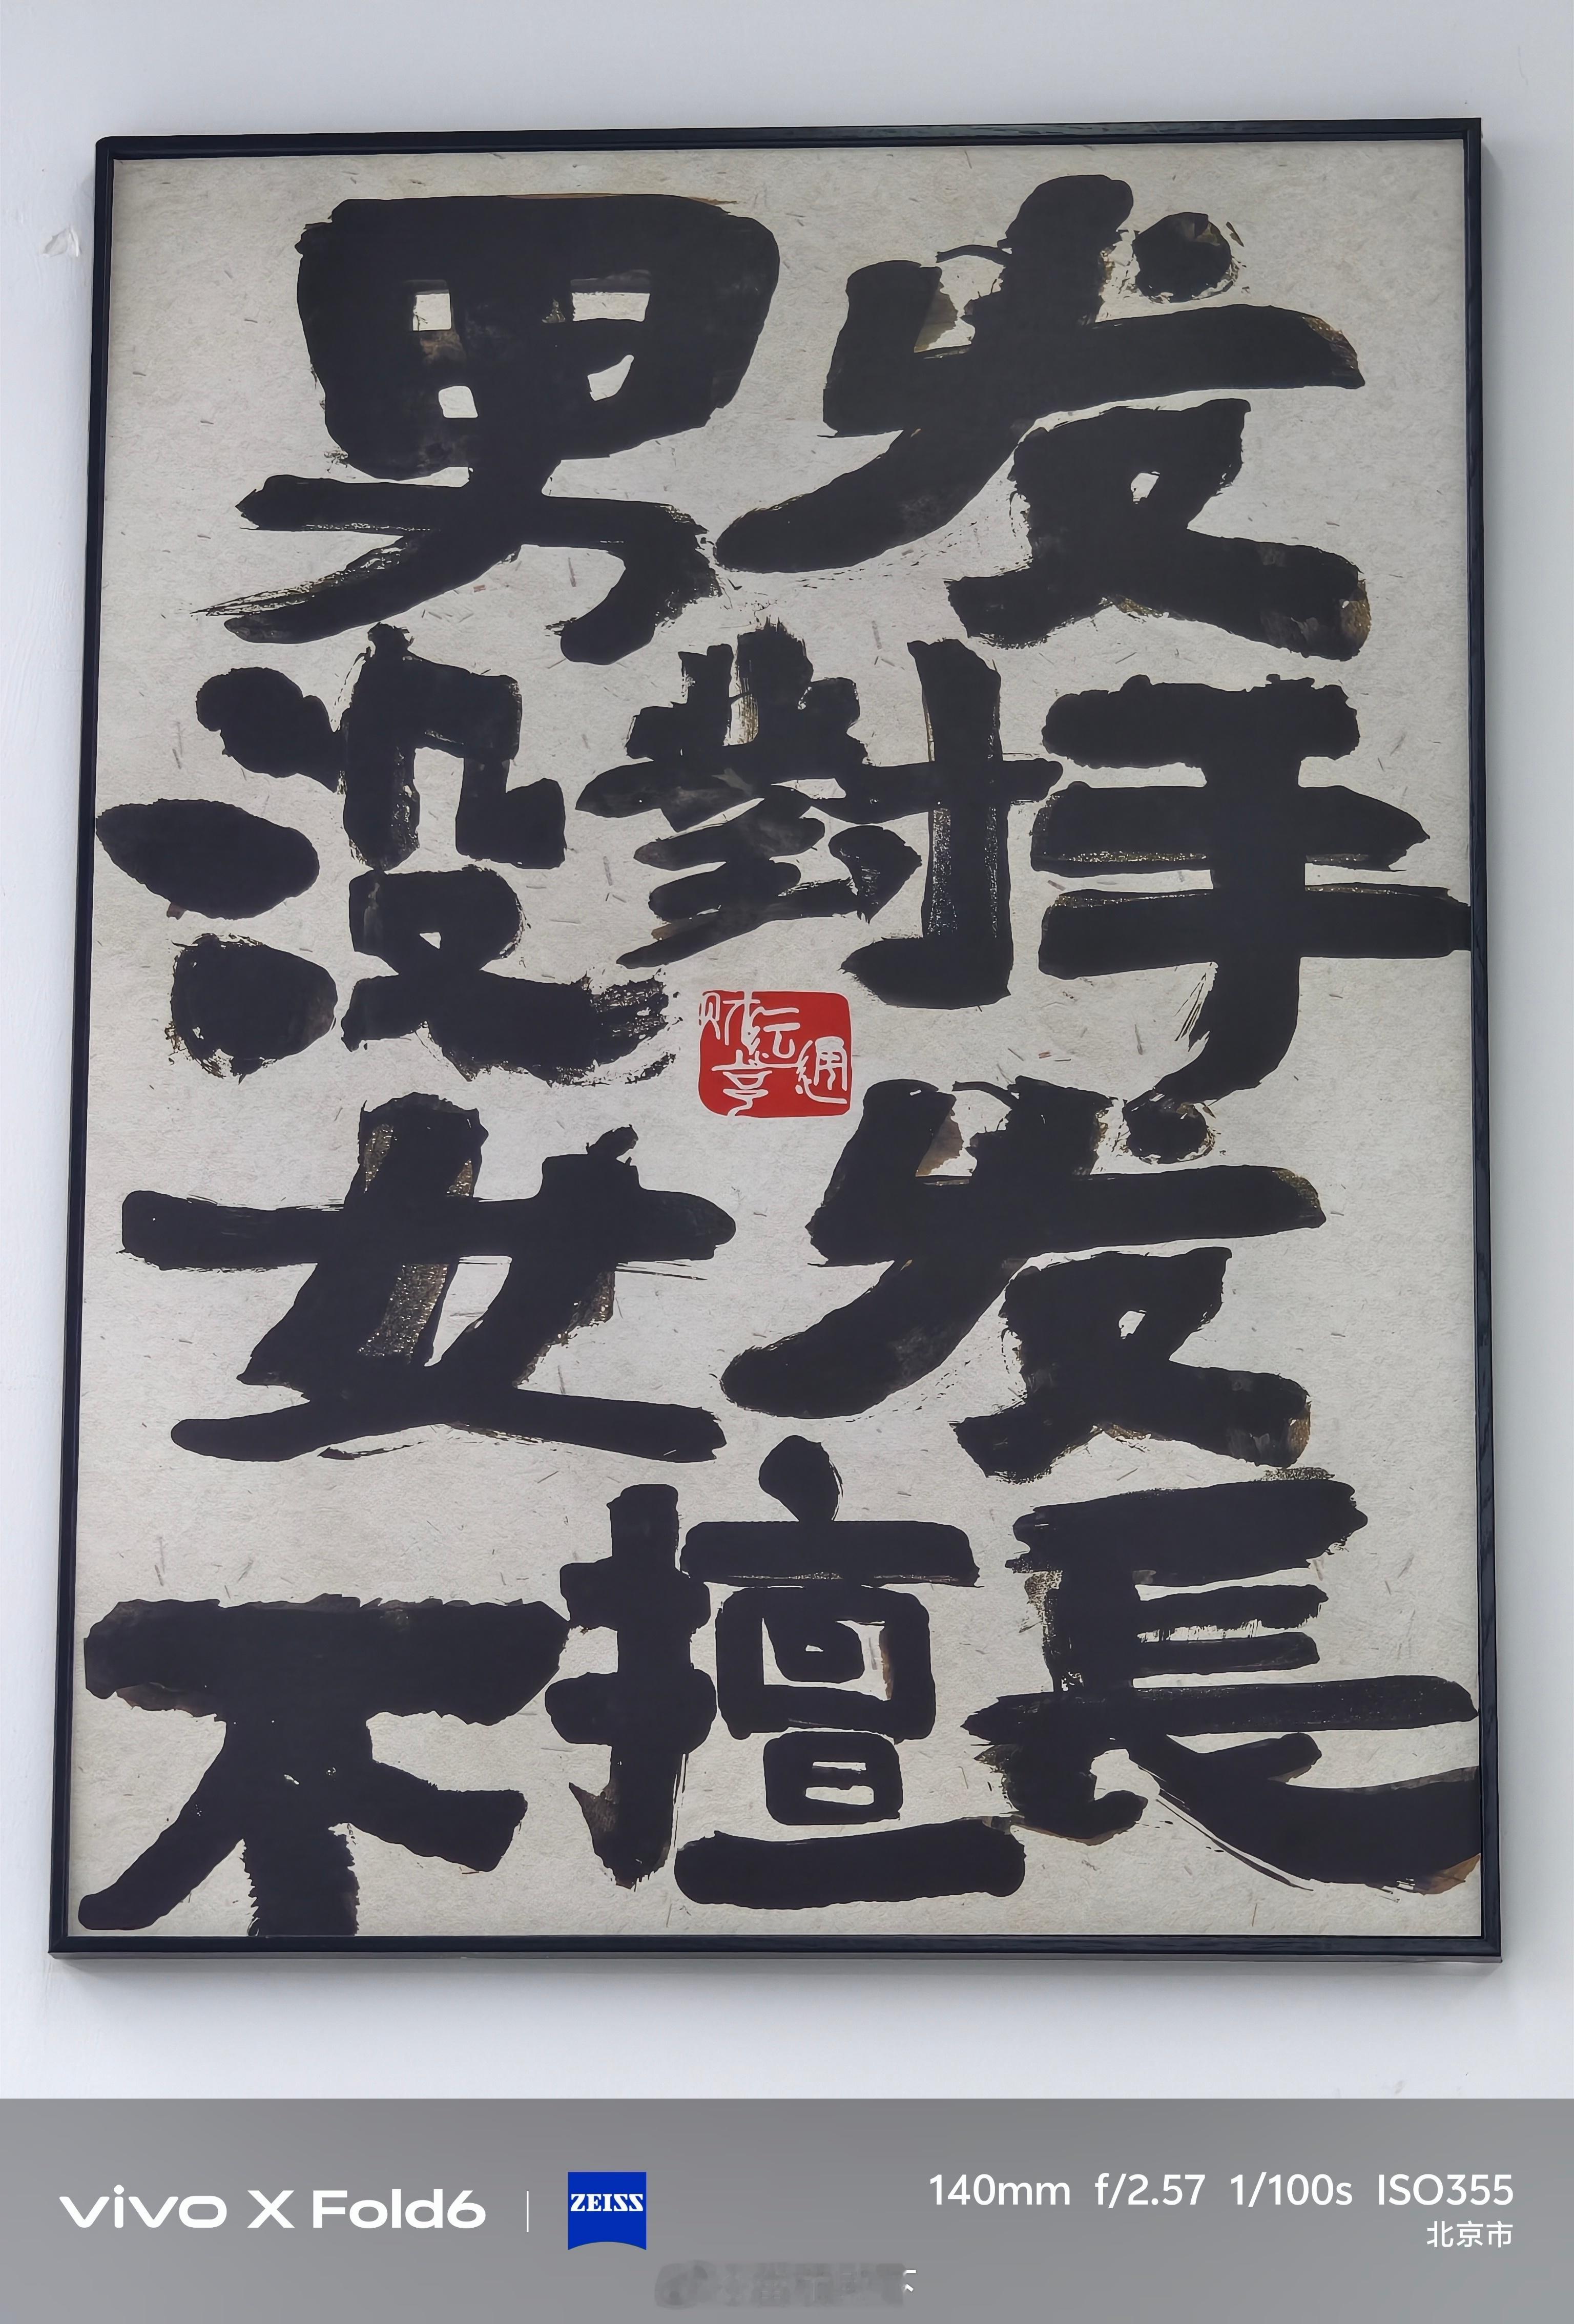 男发
没對手
财运
亨通
女发
不擅長
vivo X Fold6
ZEISS
140mm f/2.57 1/100s ISO355
北京市